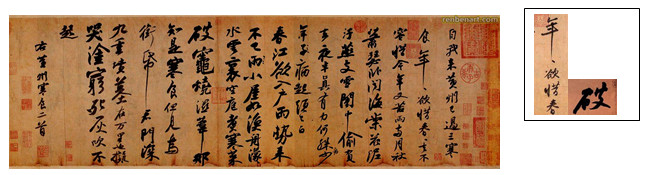 renbenart.com
自我来黄州已過三寒
食年〻欲惜春〻去不
容惜今年又苦雨兩月秋
蕭瑟卧聞海棠花泥
汙燕支雪闇中偷負
去夜半真有力何殊少
年子病起頭已白
春江欲入户雨勢来
不已雨小屋如漁舟濛〻
水雲裏空庖煮寒菜
破竈燒濕葦那
知是寒食但見烏
銜帋君門深
九重墳墓在万里也擬
哭塗窮死灰吹不
起
右黄州寒食二首
年〻欲惜春
破